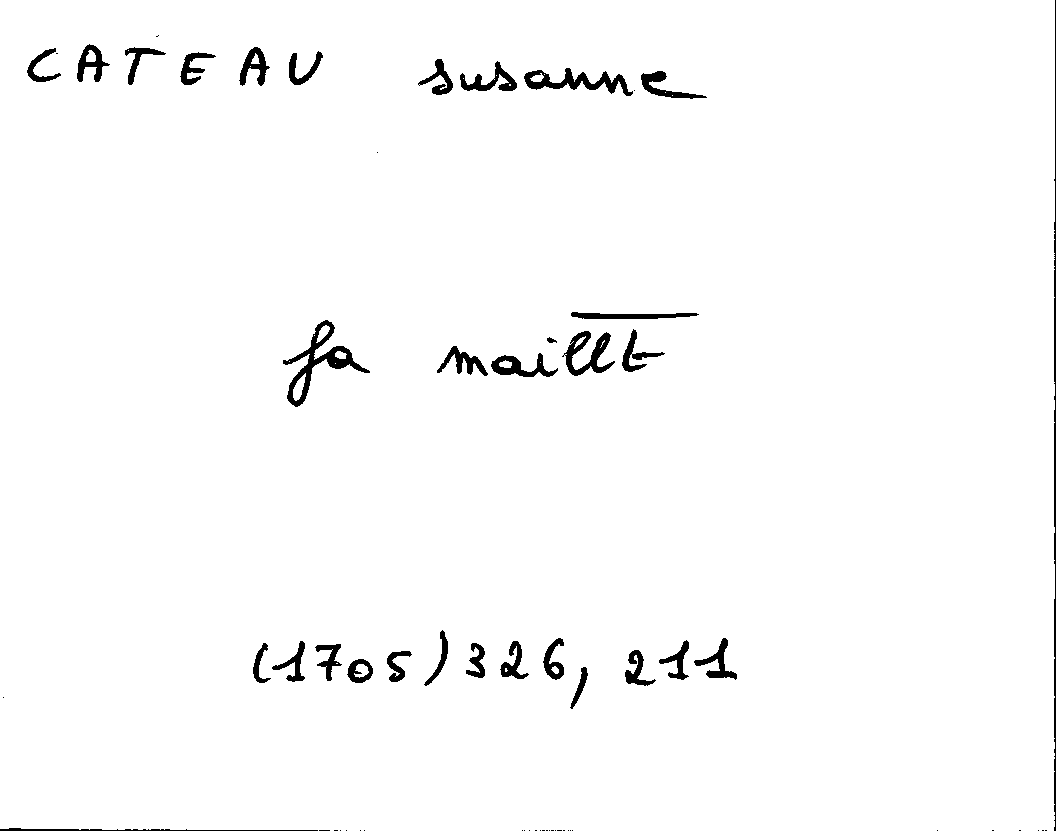 CATEAU susanne
fa maillt
(1705) 326, 211